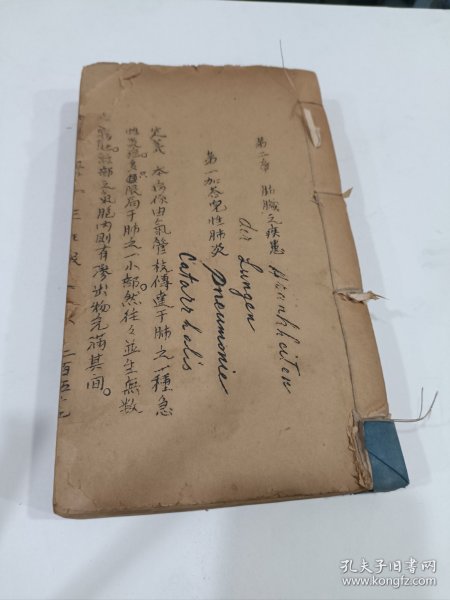 第二章 肺臟之疾患 Krankheiten
der Lungen
第一加答兒性肺炎 Pneumonie
Catarrhalis
定義 本病係由氣管枝傳達于肺之一種急
性炎症多限局于肺之一小部然往々並生無數
之氣胞內則有滲出物充滿其間。
二百五
孔夫子旧书网
www.kongfz.com